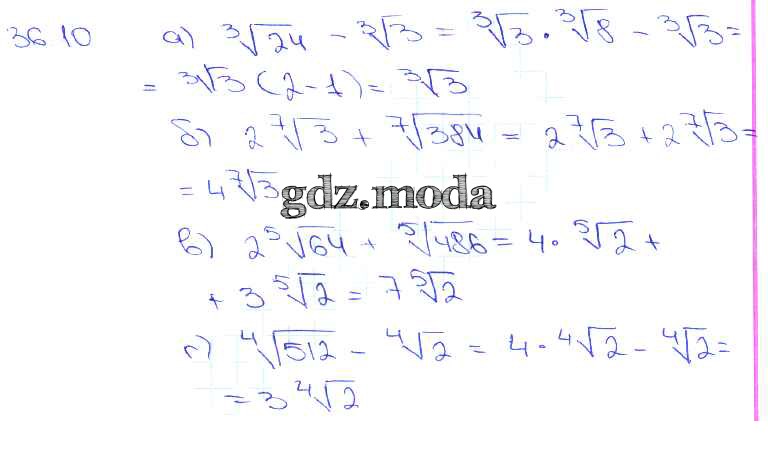 36 10 а) ∛24 - ∛3 = ∛3 · ∛8 - ∛3 =
= ∛3 (2 - 1) = ∛3
б) 2 ⁷√3 + ⁷√384 = 2 ⁷√3 + 2 ⁷√3 =
= 4 ⁷√3
gdz.moda
в) 2 ⁵√64 + ⁵√486 = 4 · ⁵√2 +
+ 3 ⁵√2 = 7 ⁵√2
г) ⁴√512 - ⁴√2 = 4 · ⁴√2 - ⁴√2 =
= 3 ⁴√2